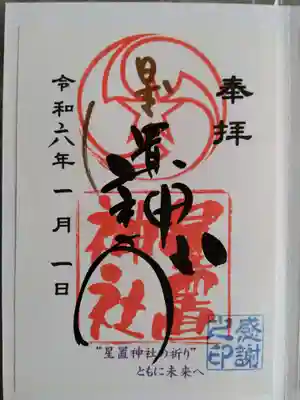 奉拝
星置神社
星置
神社
令和六年一月一日
感謝
之印
"星置神社の祈り"
ともに未来へ